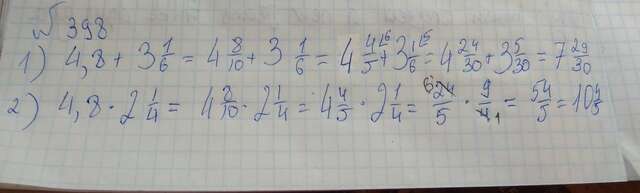 № 398
1) 4,8 + 3 1/6 = 4 8/10 + 3 1/6 = 4 4/5 \6 + 3 1/6 \5 = 4 24/30 + 3 5/30 = 7 29/30
2) 4,8 · 2 1/4 = 4 8/10 · 2 1/4 = 4 4/5 · 2 1/4 = 6 24/5 · 9/4 1 = 54/5 = 10 4/5